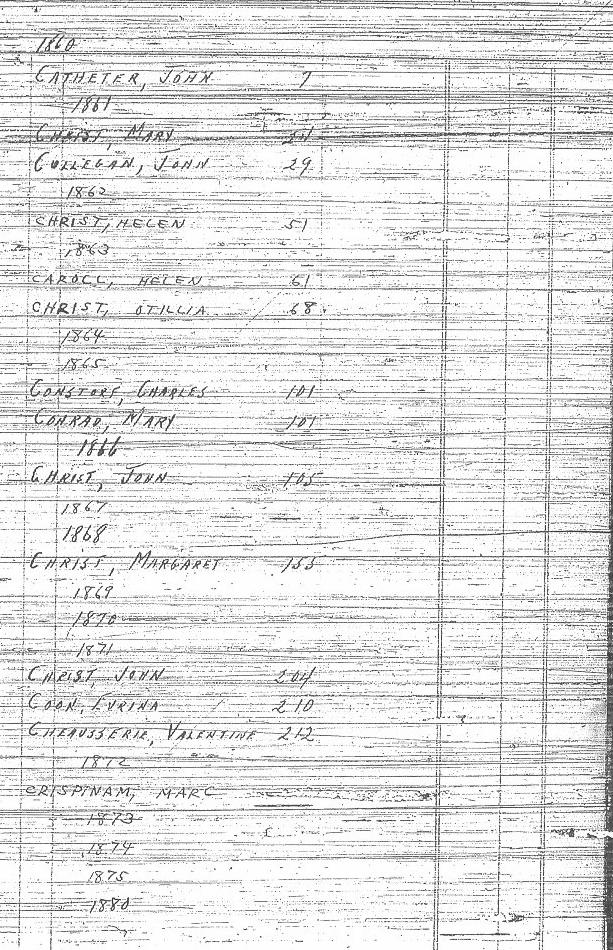 1860
CATHETER, JOHN 7
1861
CHRIST, MARY
CULLEGAN, JOHN 29
1862
CHRIST, HELEN 51
1863
CAROLL, HELEN 61
CHRIST, OTILLIA 68
1864
1865
CONSTORF, CHARLES 101
CONRAD, MARY 101
1866
CHRIST, JOHN 105
1867
1868
CHRIST, MARGARET 155
1869
1870
1871
CHRIST, JOHN 204
COON, EVRINA 210
CHEAUSSERIE, VALENTINE 212
1872
CRISPINAM, MARC
1873
1874
1875
1880